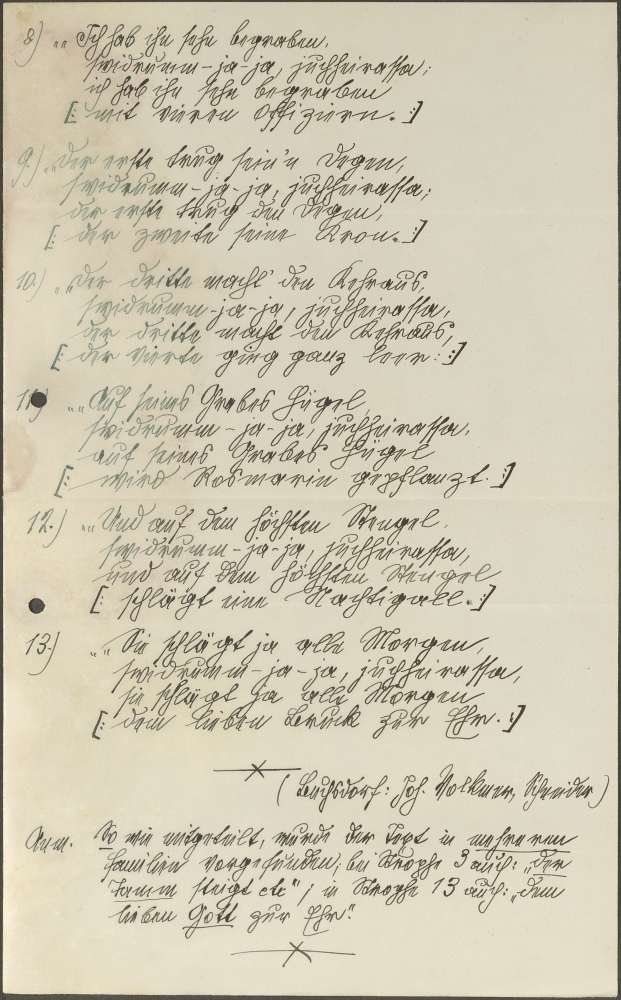 8.) „Ich hab ihn sehn begraben,
swidrumm-ja-ja, juchheirassa;
ich hab ihn sehn begraben
[: mit vieren Offiziern. :]
9.) „Der erste trug sein'n Degen,
swidrumm-ja-ja, juchheirassa;
der erste trug den Degen,
[: der zweite seine Kron. :]
10.) „Der dritte macht' den Kehraus,
swidrumm-ja-ja, juchheirassa,
der dritte macht den Kehraus,
[: der vierte ging ganz leer. :]
11.) „Auf seines Grabes Hügel,
swidrumm-ja-ja, juchheirassa,
auf seines Grabes Hügel
[: wird Rosmarin gepflanzt. :]
12.) „Und auf dem höchsten Stengel,
swidrumm-ja-ja, juchheirassa,
und auf dem höchsten Stengel
[: schlägt eine Nachtigall. :]
13.) „Sie schlägt ja alle Morgen,
swidrumm-ja-ja, juchheirassa,
sie schlägt ja alle Morgen
[: dem lieben Bruck zur Ehr. :]
(Buchsdorf: Joh. Volkmer, Schneider)
Anm. So wie mitgeteilt, wurde der Text in mehreren
Familien vorgefunden; bei Strophe 3 auch: „Der
Tamm steigt etc"; in Strophe 13 auch: „dem
lieben Gott zur Ehr."